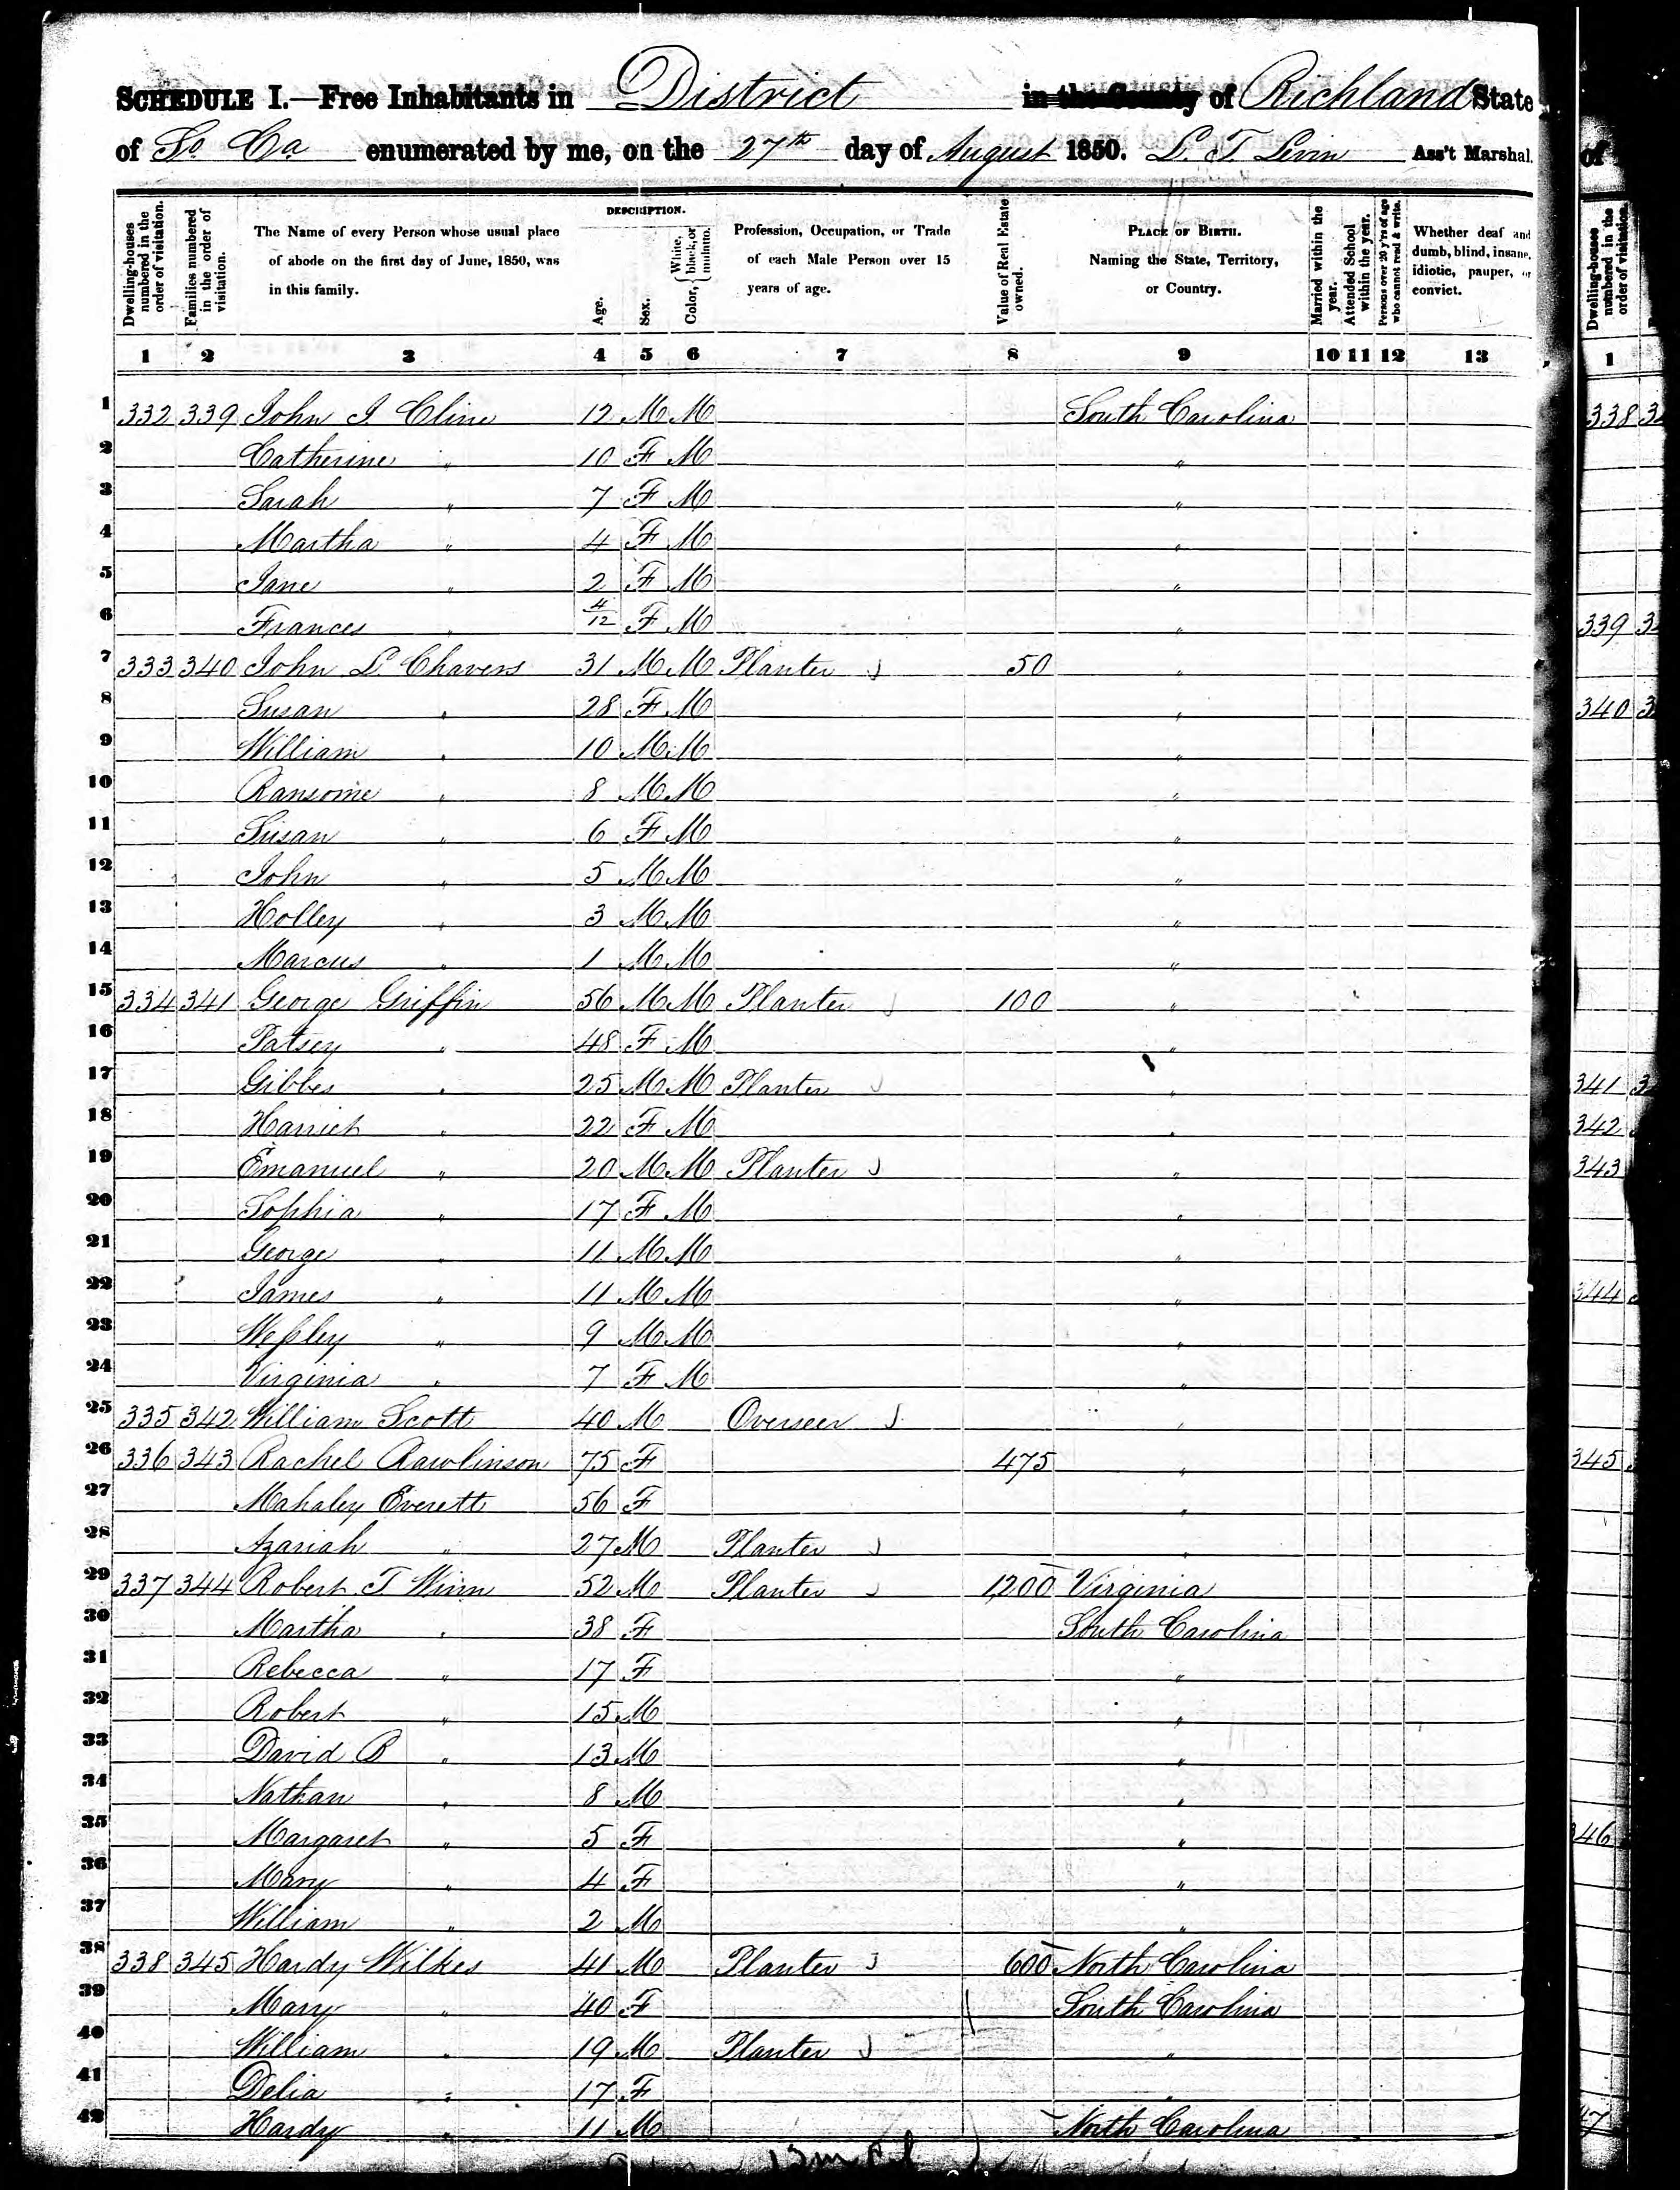 SCHEDULE I.—Free Inhabitants in District in the County of Richland State
of So Ca enumerated by me, on the 27th day of August 1850. L. T. Levin Ass't Marshal.
Dwelling-houses numbered in the order of visitation.
Families numbered in the order of visitation.
The Name of every Person whose usual place of abode on the first day of June, 1850, was in this family.
DESCRIPTION.
Age.
Sex.
Color, { White, black, or mulatto.
Profession, Occupation, or Trade of each Male Person over 15 years of age.
Value of Real Estate owned.
PLACE OF BIRTH. Naming the State, Territory, or Country.
Married within the year.
Attended School within the year.
Persons over 20 y'rs of age who cannot read & write.
Whether deaf and dumb, blind, insane, idiotic, pauper, or convict.
1 2 3 4 5 6 7 8 9 10 11 12 13
1 332 339 John J. Cline 12 M M South Carolina
2 Catherine " 10 F M "
3 Sarah " 7 F M "
4 Martha " 4 F M "
5 Jane " 2 F M "
6 Frances " 4/12 F M "
7 333 340 John L. Chavers 31 M M Planter 50 "
8 Susan " 28 F M "
9 William " 10 M M "
10 Ransome " 8 M M "
11 Susan " 6 F M "
12 John " 5 M M "
13 Holley " 3 M M "
14 Marcus " 1 M M "
15 334 341 George Griffin 56 M M Planter 100 "
16 Patsey " 48 F M "
17 Gibbes " 25 M M Planter "
18 Harriet " 22 F M "
19 Emanuel " 20 M M Planter "
20 Sophia " 17 F M "
21 George " 11 M M "
22 James " 11 M M "
23 Wessley " 9 M M "
24 Virginia " 7 F M "
25 335 342 William Scott 40 M Overseer "
26 336 343 Rachel Rawlinson 75 F 475 "
27 Mahaley Everett 56 F "
28 Azariah " 27 M Planter "
29 337 344 Robert T Winn 52 M Planter 1,200 Virginia
30 Martha " 38 F South Carolina
31 Rebecca " 17 F "
32 Robert " 15 M "
33 David B " 13 M "
34 Nathan " 8 M "
35 Margaret " 5 F "
36 Mary " 4 F "
37 William " 2 M "
38 338 345 Hardy Wilkes 41 M Planter 600 North Carolina
39 Mary " 40 F South Carolina
40 William " 19 M Planter "
41 Delia " 17 F "
42 Hardy " 11 M North Carolina
of
Dwelling-houses numbered in the order of visitation.
1
338
339
340
341
342
343
344
345
46
47